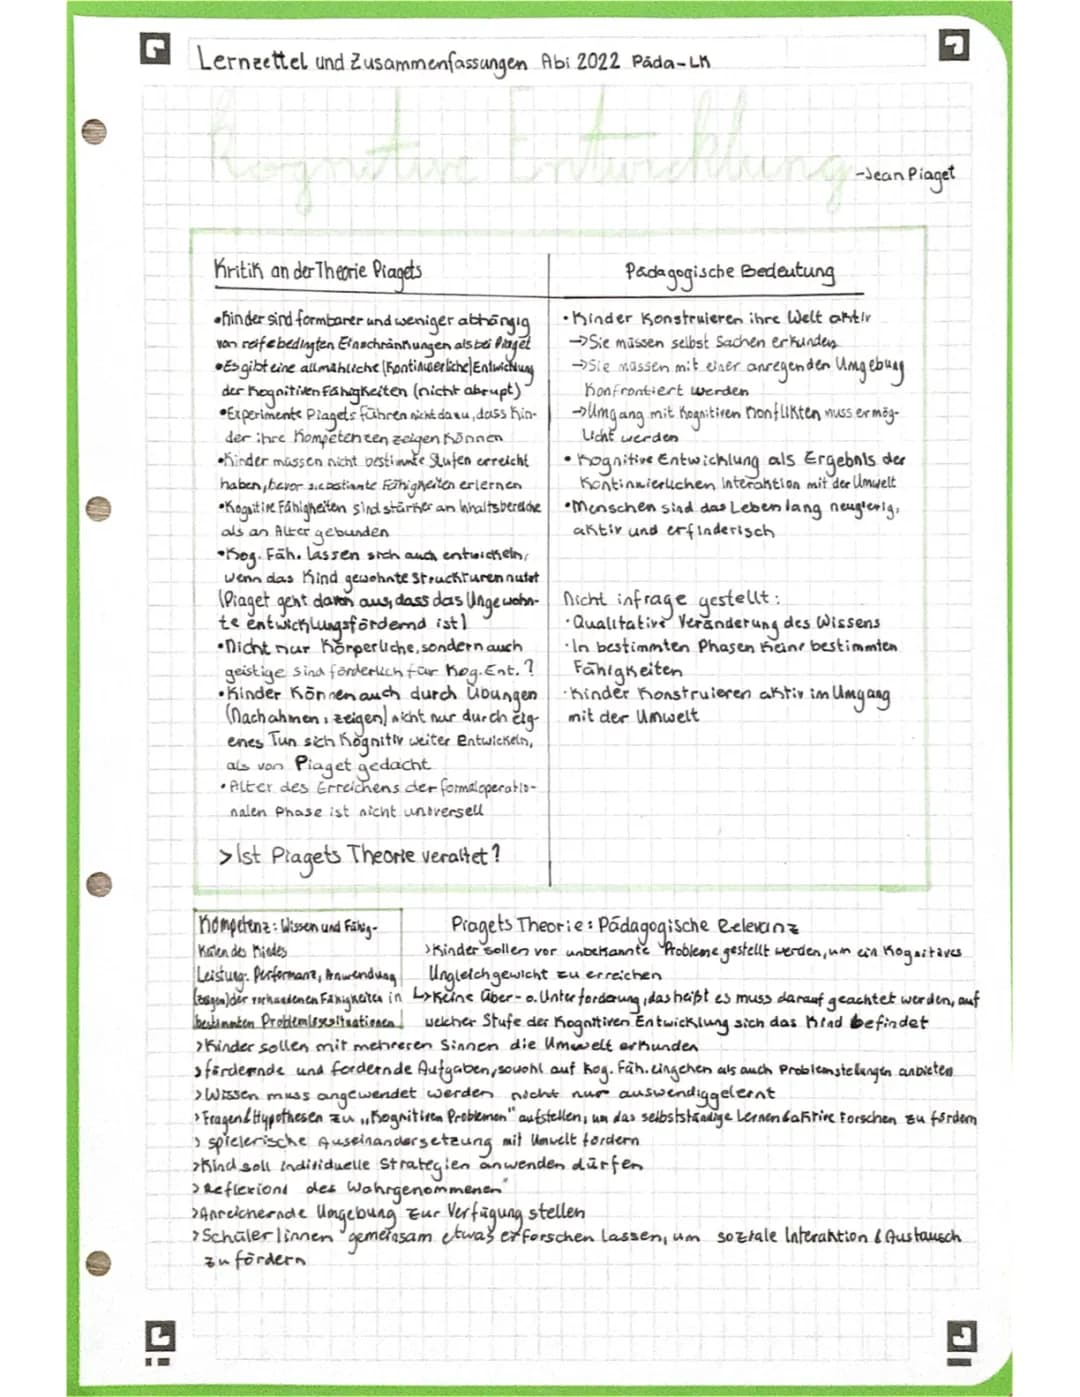 Lernzettel und Zusammenfassungen Abi 2022 Päda-LK
Kognitive Entwicklung
-Jean Piaget
Kritik an der Theorie Piagets
•Kinder sind formbarer und weniger abhängig
von reifebedingten Einschränkungen als bei Piaget
•Es gibt eine allmähliche (Kontinuierliche) Entwicklung
der Kognitiven Fähigkeiten (nicht abrupt)
•Experimente Piagets führen nicht dazu, dass Kin-
der ihre Kompetenzen zeigen können
•Kinder müssen nicht bestimmte Stufen erreicht
haben, bevor sie bestimte Fähigkeiten erlernen
•Kognitive Fähigkeiten sind stärker an Inhaltsbereiche
als an Alter gebunden
•Kog. Fäh. lassen sich auch entwickeln,
wenn das Kind gewohnte Struckturen nutzt
(Piaget geht davon aus, dass das Ungewohn-
te entwicklungsfördernd ist)
•Nicht nur Körperliche, sondern auch
geistige sind förderlich für Kog. Ent.?
•Kinder Können auch durch Übungen
(Nachahmen, zeigen) nicht nur durch eig-
enes Tun sich Kognitiv weiter Entwickeln,
als von Piaget gedacht
•Alter des Erreichens der formaloperatio-
nalen Phase ist nicht universell
>Ist Piagets Theorie veraltet?
Pädagogische Bedeutung
•Kinder Konstruieren ihre Welt aktiv
→Sie müssen selbst Sachen erkunden
→Sie müssen mit einer anregenden Umgebung
Konfrontiert werden
→Umgang mit Kognitiven Konflikten muss ermög-
licht werden
•Kognitive Entwicklung als Ergebnis der
Kontinuierlichen Interaktion mit der Umwelt
•Menschen sind das Leben lang neugierig,
aktiv und erfinderisch
Nicht infrage gestellt:
·Qualitative Veränderung des Wissens
·In bestimmten Phasen Keine bestimmten
Fähigkeiten
·Kinder Konstruieren aktiv im Umgang
mit der Umwelt
Kompetenz: Wissen und Fähig-
Keiten des Kindes
Leistung: Performanz, Anwendung
(zeigen) der vorhandenen Fähigkeiten in
bestimmten Problemlösesituationen
Piagets Theorie: Pädagogische Relevanz
>Kinder sollen vor unbekannte Probleme gestellt werden, um ein Kognitives
Ungleichgewicht zu erreichen
↳Keine Über- o. Unterforderung, das heißt es muss darauf geachtet werden, auf
welcher Stufe der Kognitiven Entwicklung sich das Kind befindet
>Kinder sollen mit mehreren Sinnen die Umwelt erkunden
>fördernde und fordernde Aufgaben, sowohl auf Kog. Fäh. eingehen als auch Problemstellungen anbieten
>Wissen muss angewendet werden nicht nur auswendiggelernt
>Fragen & Hypothesen zu „Kognitiven Problemen" aufstellen, um das selbstständige Lernen & aktive Forschen zu fördern
> spielerische Auseinandersetzung mit Umwelt fördern
>Kind soll individuelle Strategien anwenden dürfen
>Reflexion des Wahrgenommenen
>Anreichernde Umgebung zur Verfügung stellen
>Schüler/innen gemeinsam etwas erforschen lassen, um soziale Interaktion & Austausch
zu fördern